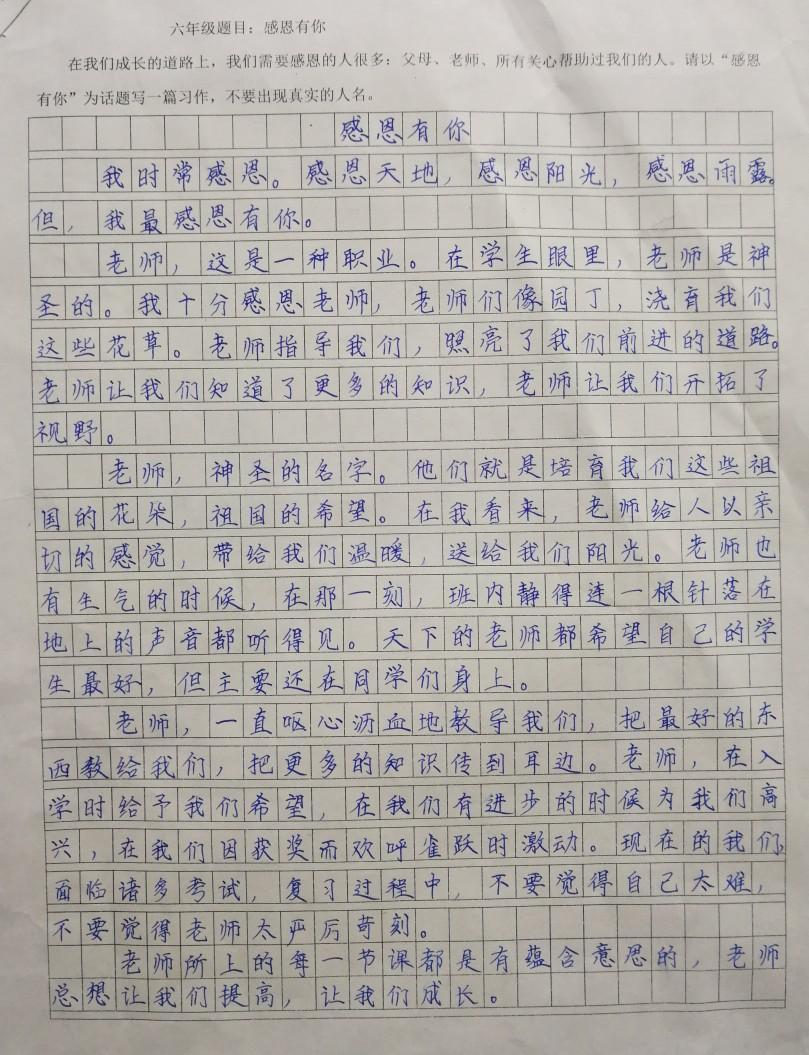 六年级题目：感恩有你
在我们成长的道路上，我们需要感恩的人很多：父母、老师、所有关心帮助过我们的人。请以“感恩
有你”为话题写一篇习作，不要出现真实的人名。
感恩有你
我时常感恩。感恩天地，感恩阳光，感恩雨露。
但，我最感恩有你。
老师，这是一种职业。在学生眼里，老师是神
圣的。我十分感恩老师，老师们像园丁，浇育我们
这些花草。老师指导我们，照亮了我们前进的道路。
老师让我们知道了更多的知识，老师让我们开拓了
视野。
老师，神圣的名字。他们就是培育我们这些祖
国的花朵，祖国的希望。在我看来，老师给人以亲
切的感觉，带给我们温暖，送给我们阳光。老师也
有生气的时候，在那一刻，班内静得连一根针落在
地上的声音都听得见。天下的老师都希望自己的学
生最好，但主要还在同学们身上。
老师，一直呕心沥血地教导我们，把最好的东
西教给我们，把更多的知识传到耳边。老师，在入
学时给予我们希望，在我们有进步的时候为我们高
兴，在我们因获奖而欢呼雀跃时激动。现在的我们，
面临诸多考试，复习过程中，不要觉得自己太难，
不要觉得老师太严厉苛刻。
老师所上的每一节课都是有蕴含意思的，老师
总想让我们提高，让我们成长。